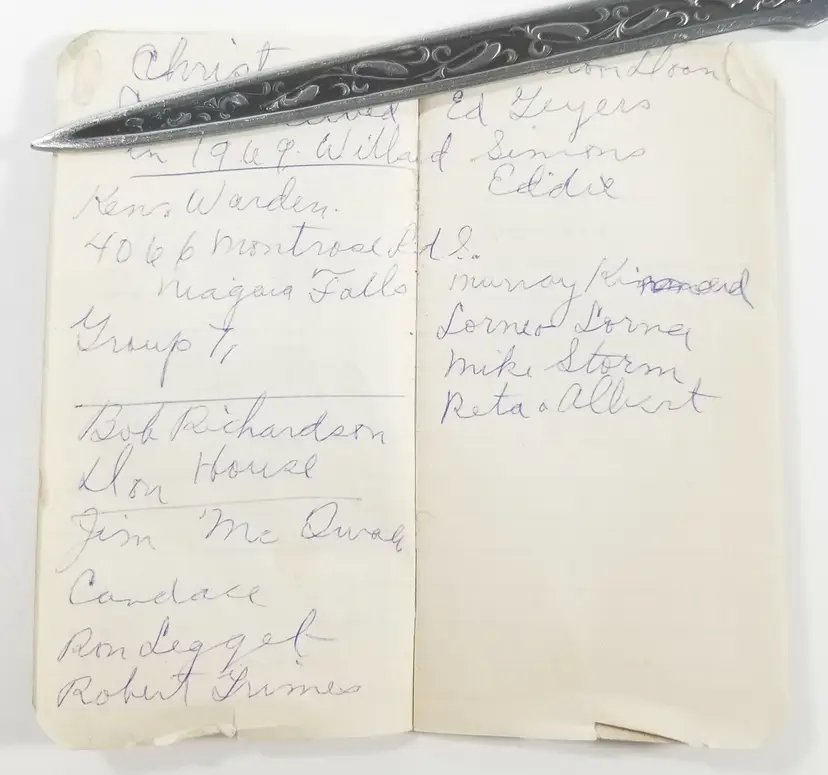 Christ
in 1969. Willard
Ken. Warden.
4066 Montrose Rd S.
Niagara Falls
Group 7,
Bob Richardson
Don House
Jim Mc
Candace
Ron Legget
Robert Grimes
Doan
Ed Geyers
Simons
Eddie
Murray
Lorne & Lorna
Mike Storm
Reta & Albert